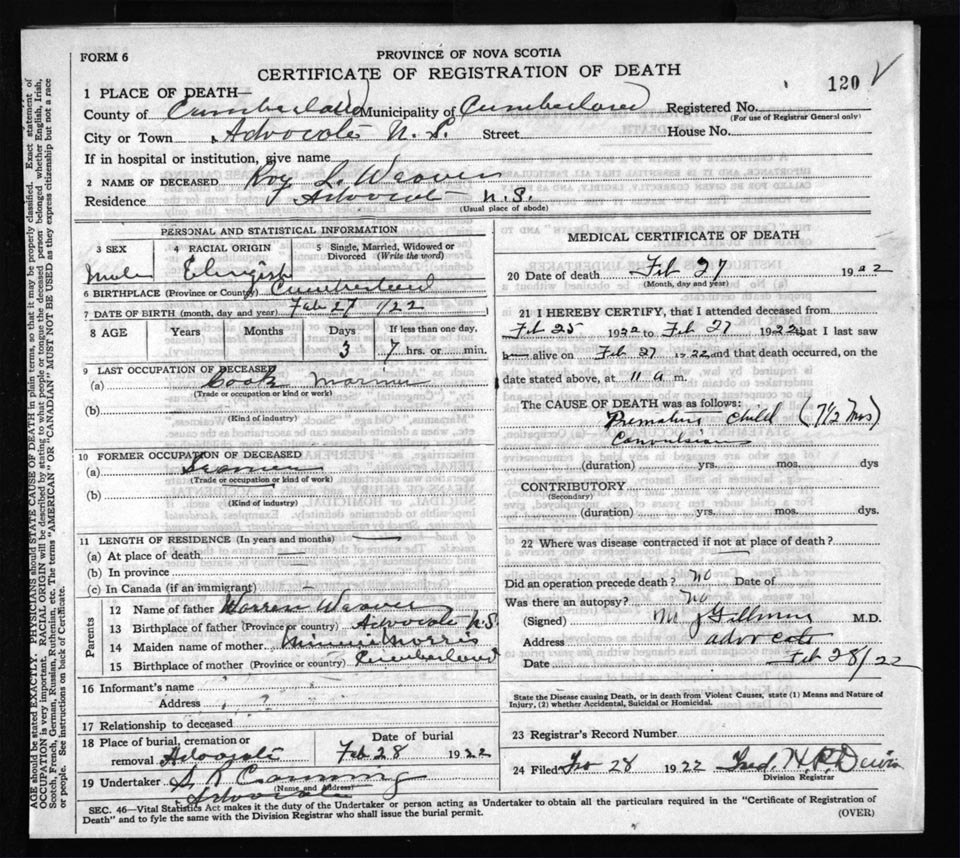 FORM 6
PROVINCE OF NOVA SCOTIA
CERTIFICATE OF REGISTRATION OF DEATH
120
1 PLACE OF DEATH—
County of Cumberland Municipality of Cumberland Registered No.
(For use of Registrar General only)
City or Town Advocate N. S. Street House No.
If in hospital or institution, give name
2 NAME OF DECEASED Roy L. Weaver
Residence Advocate N.S.
(Usual place of abode)
PERSONAL AND STATISTICAL INFORMATION
3 SEX 4 RACIAL ORIGIN 5 Single, Married, Widowed or Divorced (Write the word)
male English
6 BIRTHPLACE (Province or Country) Cumberland
7 DATE OF BIRTH (month, day and year) Feb 27 /22
8 AGE Years Months Days If less than one day.
3 7 hrs. or min.
9 LAST OCCUPATION OF DECEASED
(a) Cook Mariner
(Trade or occupation or kind or work)
(b)
(Kind of industry)
10 FORMER OCCUPATION OF DECEASED
(a) Seamen
(Trade or occupation or kind of work)
(b)
(Kind of industry)
11 LENGTH OF RESIDENCE (In years and months)
(a) At place of death
(b) In province
(c) In Canada (if an immigrant)
Parents
12 Name of father Warren Weaver
13 Birthplace of father (Province or country) Advocate N.S.
14 Maiden name of mother Minnie Morris
15 Birthplace of mother (Province or country) Cumberland
16 Informant's name
Address ?
17 Relationship to deceased
18 Place of burial, cremation or removal Advocate Date of burial Feb 28 1922
19 Undertaker S R Canning
(Name and Address)
Advocate
MEDICAL CERTIFICATE OF DEATH
20 Date of death Feb 27 1922
(Month, day and year)
21 I HEREBY CERTIFY, that I attended deceased from
Feb 25 1922 to Feb 27 1922 that I last saw
h alive on Feb 27 1922 and that death occurred, on the
date stated above, at 11 a m.
The CAUSE OF DEATH was as follows:
Premature child (7 1/2 Mos)
Convulsions
(duration) yrs. mos. dys
CONTRIBUTORY
(Secondary)
(duration) yrs. mos. dys.
22 Where was disease contracted if not at place of death?
Did an operation precede death? no Date of
Was there an autopsy? no
(Signed) M J Gillmore M.D.
Address advocate
Date Feb 28/22
State the Disease causing Death, or in death from Violent Causes, state (1) Means and Nature of
Injury, (2) whether Accidental, Suicidal or Homicidal.
23 Registrar's Record Number
24 Filed 28 1922 Fred. H.
Division Registrar
SEC. 46—Vital Statistics Act makes it the duty of the Undertaker or person acting as Undertaker to obtain all the particulars required in the "Certificate of Registration of
Death" and to fyle the same with the Division Registrar who shall issue the burial permit. (OVER)
AGE should be stated EXACTLY. PHYSICIANS should STATE CAUSE OF DEATH in plain terms, so that it may be properly classified. Exact statement of
OCCUPATION is very important. RACIAL ORIGIN will be described by stating to what people or tongue the deceased person belonged whether English, Irish,
Scotch, French, German, Russian, Ruthenian, etc. The terms "AMERICAN" OR "CANADIAN" MUST NOT BE USED as they express citizenship but not a race
or people. See instructions on back of Certificate.